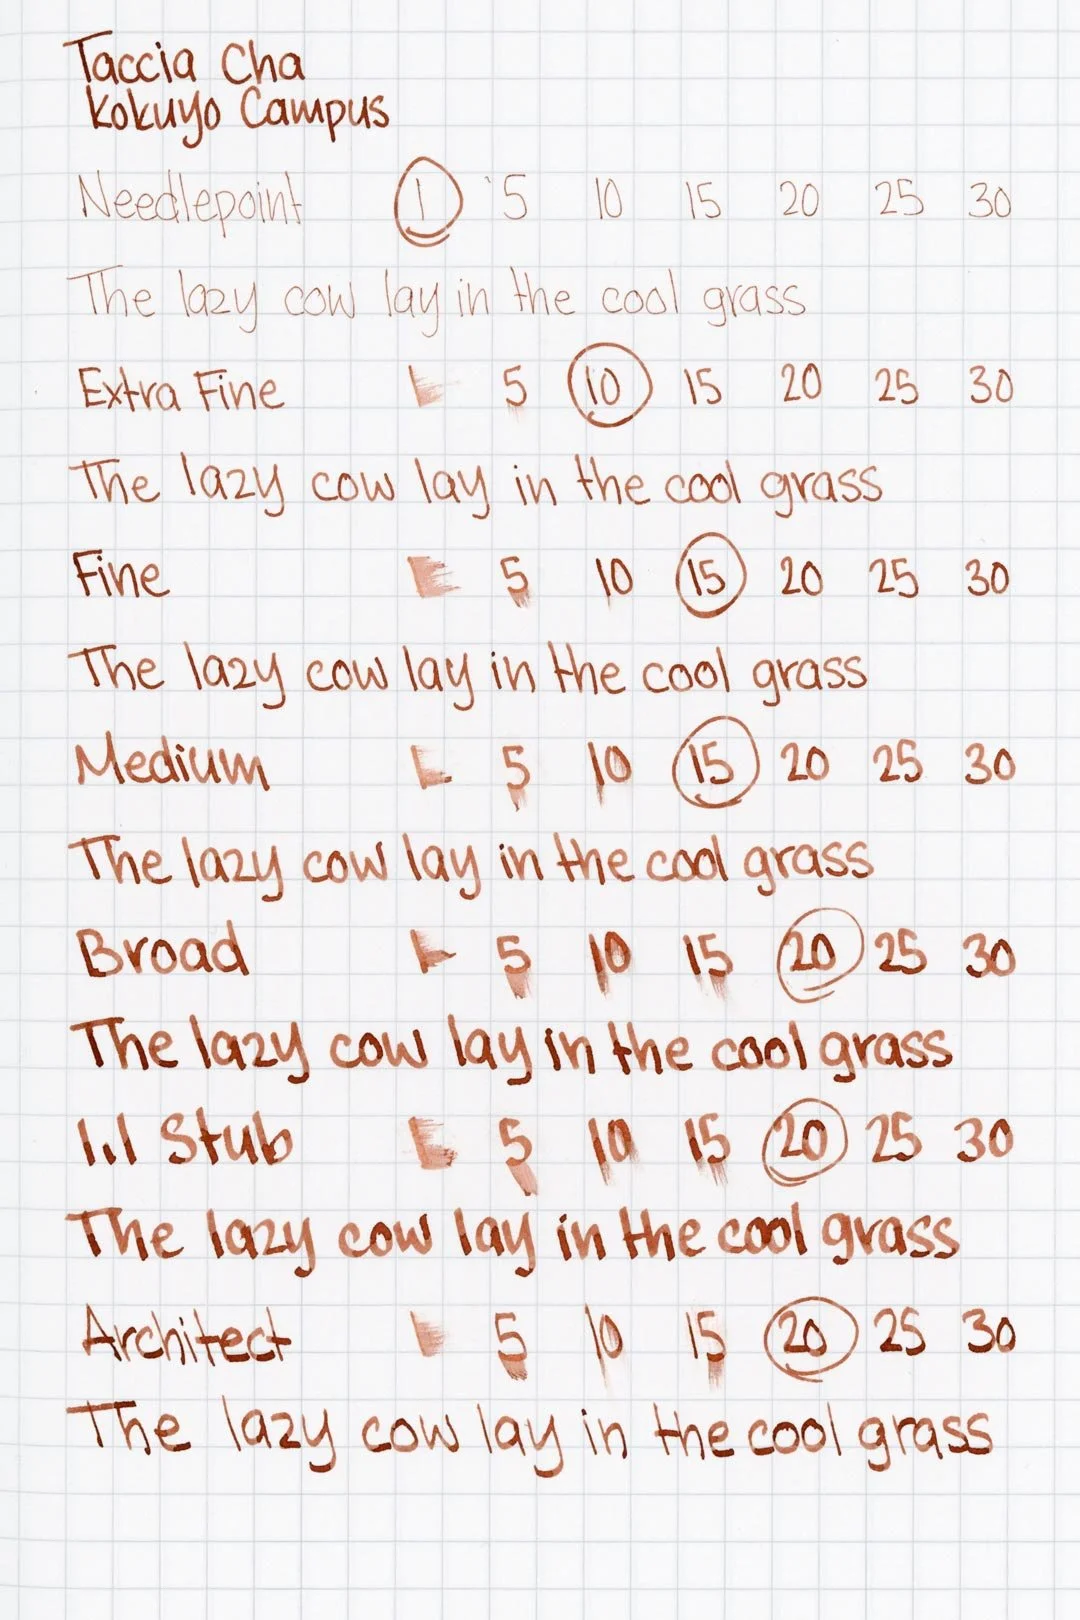 Taccia Cha
Kokuyo Campus
Needlepoint 1 5 10 15 20 25 30
The lazy cow lay in the cool grass
Extra Fine 5 10 15 20 25 30
The lazy cow lay in the cool grass
Fine 5 10 15 20 25 30
The lazy cow lay in the cool grass
Medium 5 10 15 20 25 30
The lazy cow lay in the cool grass
Broad 5 10 15 20 25 30
The lazy cow lay in the cool grass
1.1 Stub 5 10 15 20 25 30
The lazy cow lay in the cool grass
Architect 5 10 15 20 25 30
The lazy cow lay in the cool grass